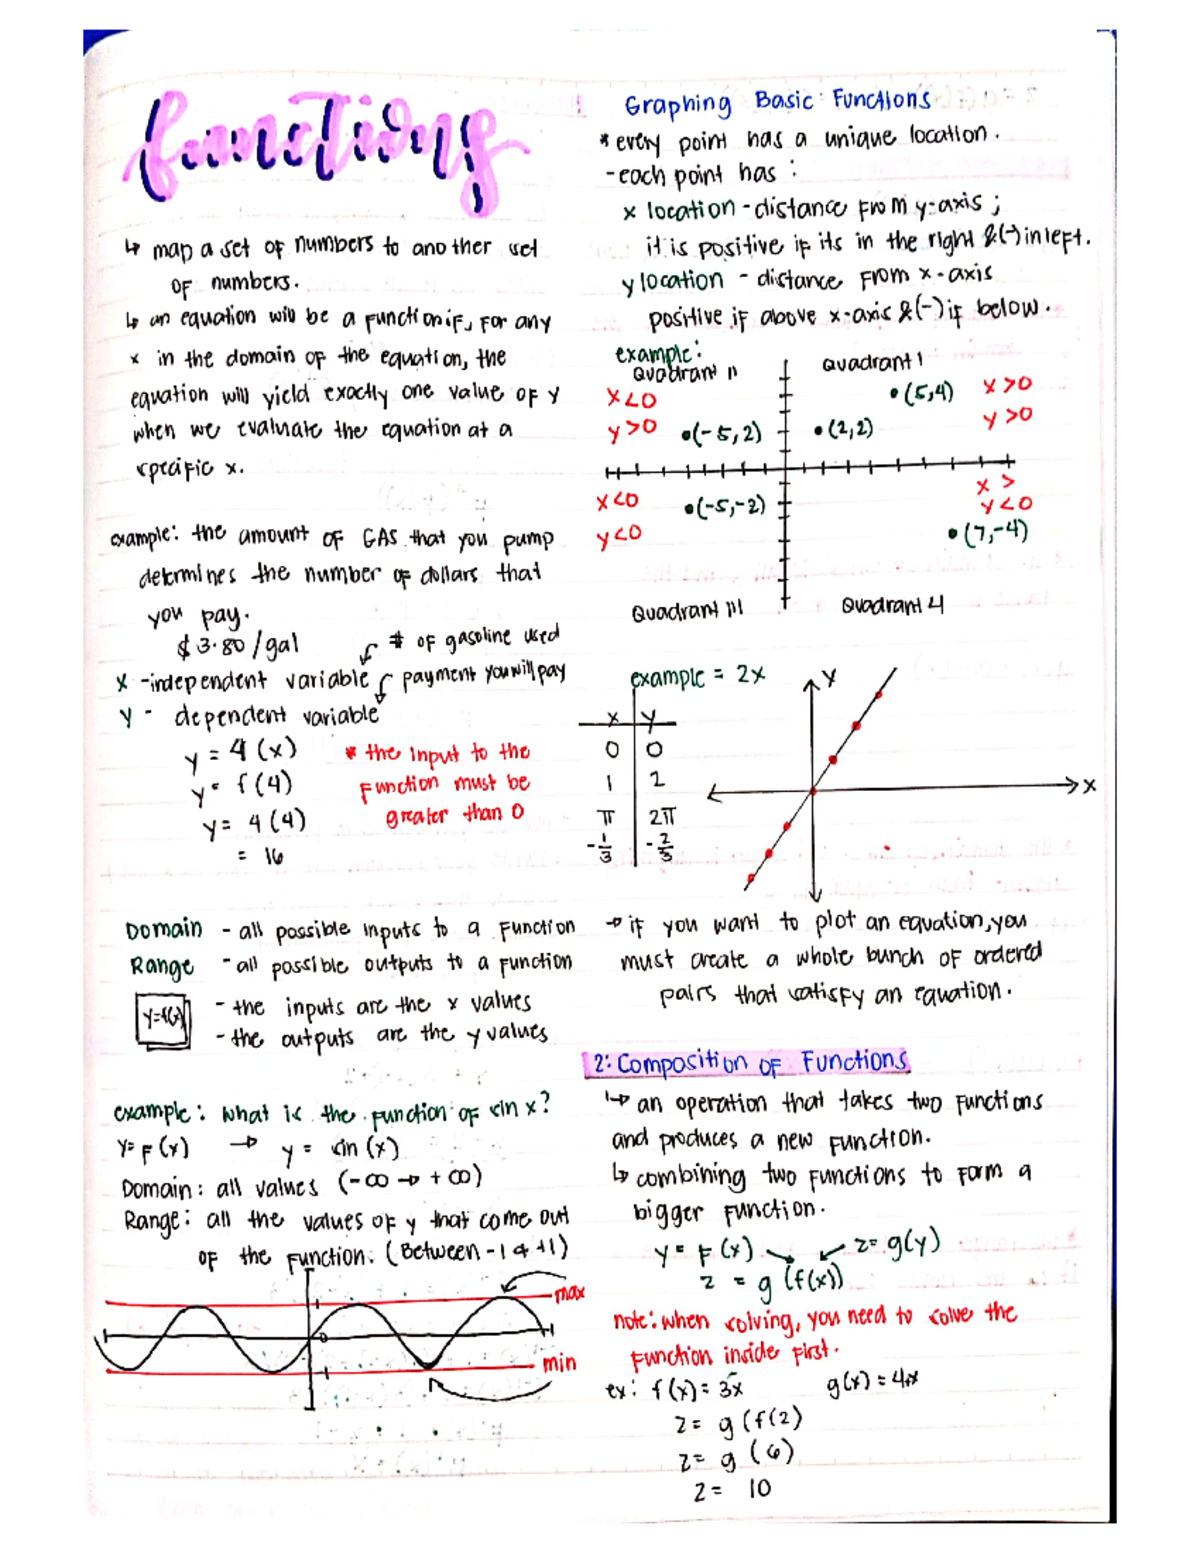 functions
↳ map a set of numbers to another set
of numbers.
↳ an equation will be a function if, for any
x in the domain of the equation, the
equation will yield exactly one value of y
when we evaluate the equation at a
specific x.
example: the amount of GAS that you pump
determines the number of dollars that
you pay.
$3.80/gal
# of gasoline used
x - independent variable
payment you will pay
y - dependent variable
y = 4(x)
y = f(4)
y = 4(4)
= 16
* the input to the
function must be
greater than 0
Domain - all possible inputs to a function
Range - all possible outputs to a function
y=f(x)
- the inputs are the x values
- the outputs are the y values
example: what is the function of sin x?
y= F(x) → y = sin(x)
Domain: all values (-∞ → +∞)
Range: all the values of y that come out
of the function. (Between -1 & +1)
max
1
0
-1
min
Graphing Basic Functions
* every point has a unique location.
- each point has :
x location - distance from y-axis ;
it is positive if its in the right & (-) in left.
y location - distance from x-axis
positive if above x-axis & (-) if below.
example:
Quadrant II
Quadrant 1
x<0
y>0
•(-5,2)
•(2,2)
•(5,4)
x>0
y>0
x<0
y<0
•(-5,-2)
x >
y<0
•(7,-4)
Quadrant III
Quadrant 4
example = 2x
x y
0 0
1 2
π 2π
-1/3 -2/3
y
x
→ if you want to plot an equation, you
must create a whole bunch of ordered
pairs that satisfy an equation.
2: Composition of Functions
↳ an operation that takes two functions
and produces a new function.
↳ combining two functions to form a
bigger function.
y = F(x) z = g(y)
z = g(f(x))
note: when solving, you need to solve the
function inside first.
ex: f(x) = 3x
z = g(f(2)
z = g(6)
z = 10